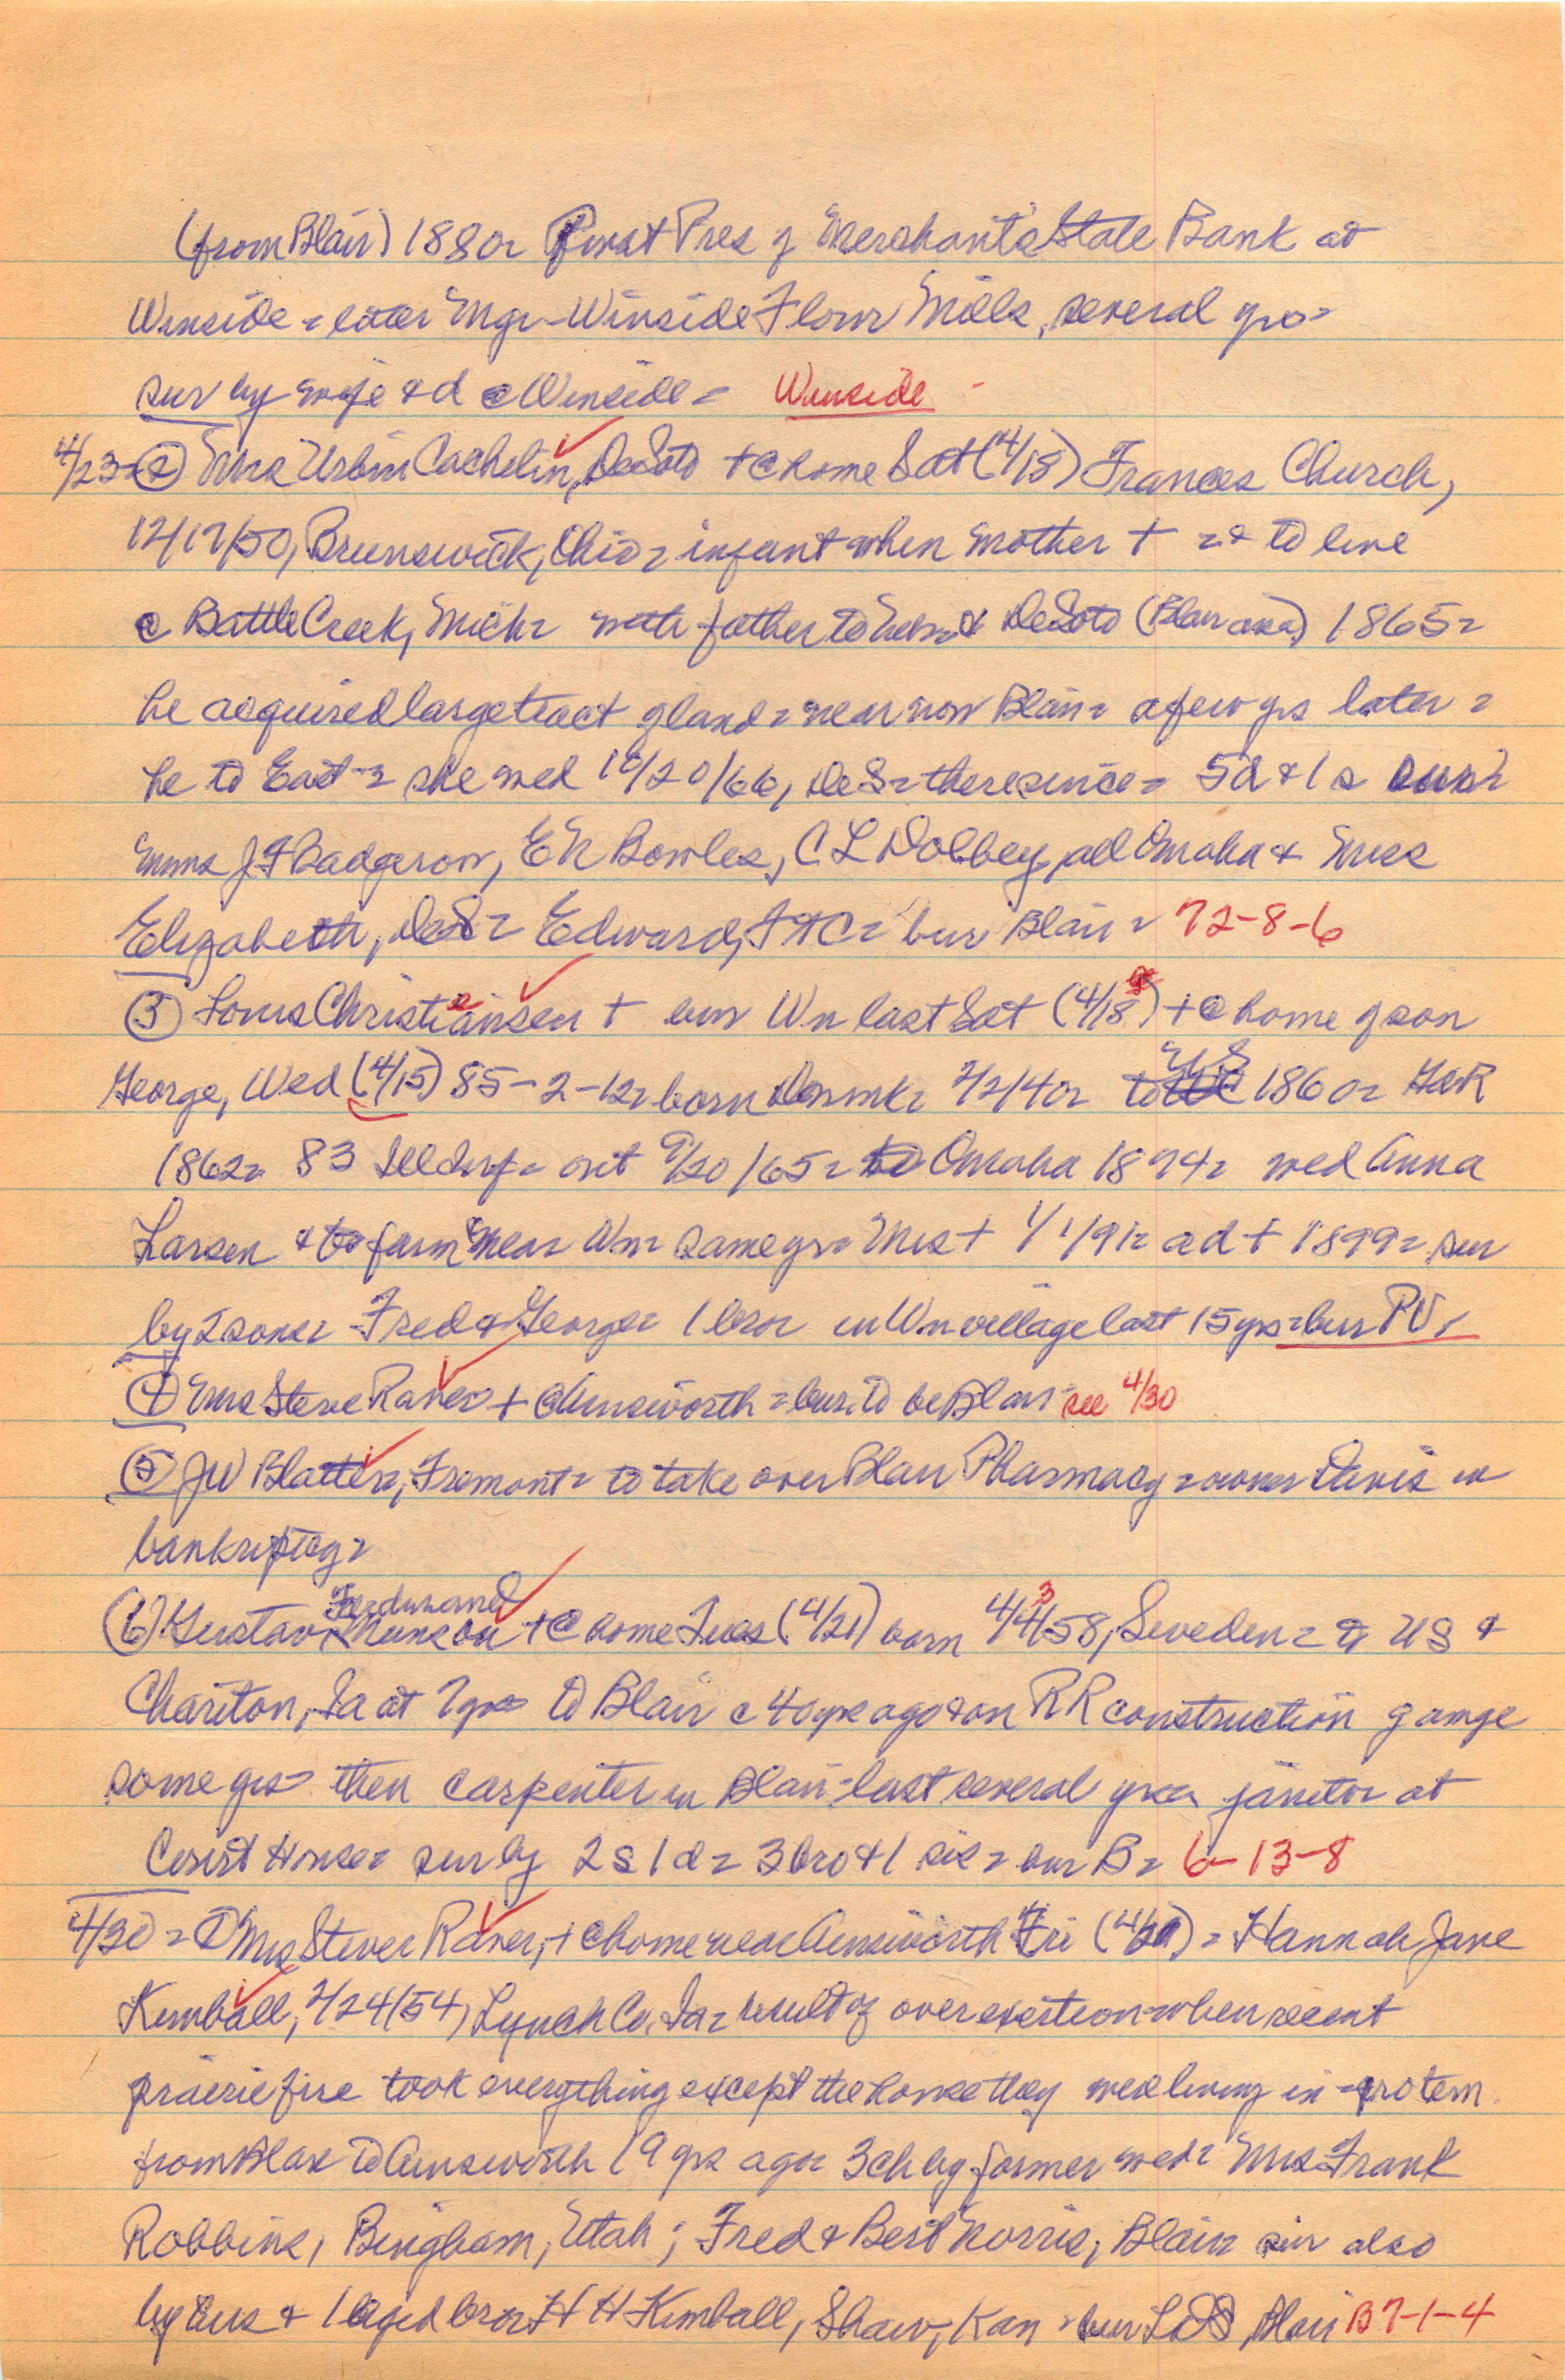 (from Blair) 1880= First Pres of Merchant's State Bank at
Winside = later Mgr - Winside Flour Mills, several yrs =
sur by wife & d @ Winside = Winside -
4/23 = (2) Mrs Urbin Cachelin, DeSoto + @ home Sat (4/18) Frances Church,
12/17/50, Brunswick, Ohio = infant when mother + = & to live
@ Battle Creek, Mich = with father to & DeSoto (Blair area) 1865 =
he acquired large tract of land = near now Blair = a few yrs later =
he to East = she wed 10/20/66, DeS = there since = 5 d & 1 s sur =
Mmes J F Badgerow, E N Bowles, C L Dolbey, all Omaha & Miss
Elizabeth, DeS = Edward, Ft C = bur Blair = 72-8-6
(3) Louis Christiansen + bur Wn last Sat (4/18) + @ home of son
George, Wed (4/15) 85-2-12 = born Denmk = 2/2/40 = to US 1860 = GAR
1862 = 83 Ill Inf = out 9/20/65 = to Omaha 1874 = wed Anna
Larsen & to farm near Wn = same yr = Mrs + 1/1/91 = a d + 1899 = sur
by 2 sons = Fred & George = 1 bro = in Wn village last 15 yrs = bur PV,
(4) Mrs Steve Raver + @ Ainsworth = bur. to be Blair see 4/30
(5) JW Blatter, Fremont = to take over Blair Pharmacy = owner Davis in
bankruptcy =
(6) Gustav Ferdinand Munson + @ home Tues (4/21) born 4/3/58, Sweden = to US &
Chariton, Ia at 7 yrs to Blair c 40 yrs ago & on RR construction gang
some yrs = then carpenter in Blair = last several yrs janitor at
Court House = sur by 2 s 1 d = 3 bro & 1 sis = bur B = 6-13-8
4/30 = (1) Mrs Steven Raver, + @ home near Ainsworth Fri = Hannah Jane
Kimball, 2/24/54, Lynch Co. Ia = result of over exertion when recent
prairie fire took everything except the house they were living in - pro tem
from Blair to Ainsworth 19 yrs ago = 3 ch by former wed = Mrs Frank
Robbins, Bingham, Utah; Fred & Bert Norris, Blair = sur also
by hus & 1 aged bro = H H Kimball, Shaw, Kan = bur LDS Blair B7-1-4